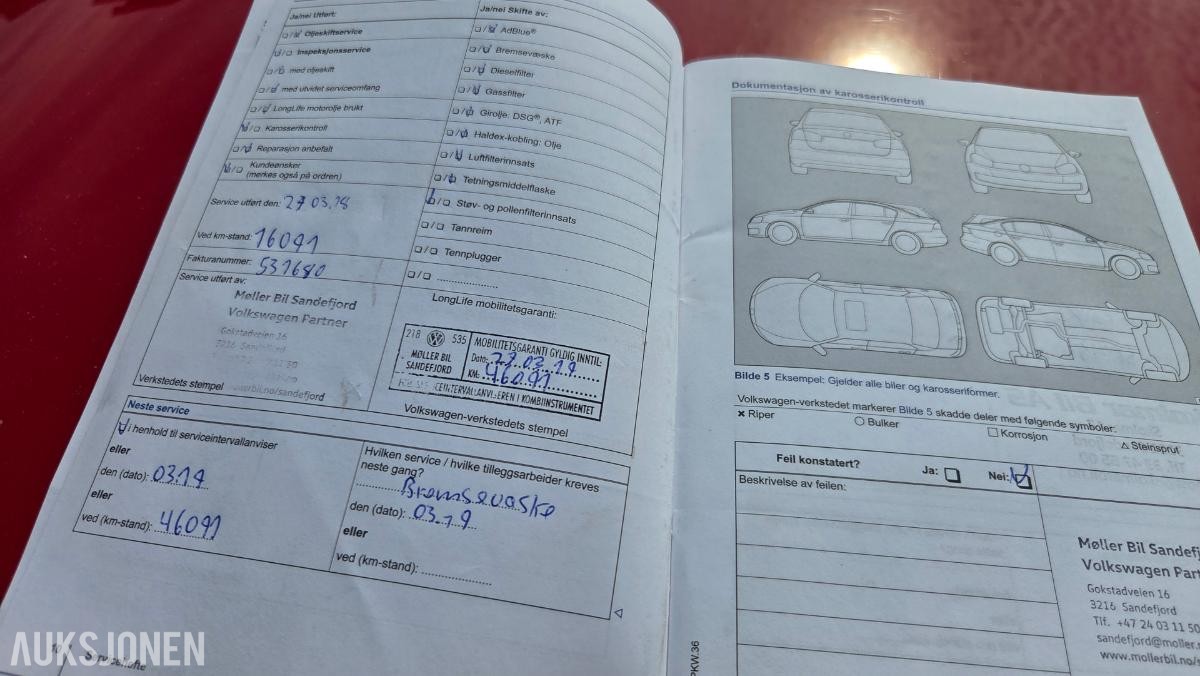 Ja/nei Utført:
☐/☑ Oljeskiftservice
☑/☐ Inspeksjonsservice
☐/☑ med oljeskift
☐/☑ med utvidet serviceomfang
☐/☑ LongLife motorolje brukt
☑/☐ Karosserikontroll
☐/☑ Reparasjon anbefalt
☑/☐ Kundeønsker
(merkes også på ordren)
Service utført den: 27 03.18
Ved km-stand: 16091
Fakturanummer: 531680
Service utført av:
Møller Bil Sandefjord
Volkswagen Partner
Gokstadveien 16
3216 Sandefjord
Verkstedets stempel
Ja/nei Skifte av:
☐/☑ AdBlue®
☐/☑ Bremsevæske
☐/☑ Dieselfilter
☐/☑ Gassfilter
☐/☑ Girolje: DSG®, ATF
☐/☑ Haldex-kobling: Olje
☐/☑ Luftfilterinnsats
☐/☑ Tetningsmiddelflaske
☑/☐ Støv- og pollenfilterinnsats
☐/☐ Tannreim
☐/☐ Tennplugger
☐/☐
LongLife mobilitetsgaranti:
218 535
MØLLER BIL
SANDEFJORD
MOBILITETSGARANTI GYLDIG INNTIL:
Dato: 27.03.19
KM: 46091
I KOMBIINSTRUMENTET
Volkswagen-verkstedets stempel
Neste service
☑ i henhold til serviceintervallanviser
eller
den (dato): 03.19
eller
ved (km-stand): 46091
Hvilken service / hvilke tilleggsarbeider kreves
neste gang?
Bremsevaske
den (dato): 03.19
eller
ved (km-stand):
Servicehefte
AUKSJONEN
Dokumentasjon av karosserikontroll
Bilde 5 Eksempel: Gjelder alle biler og karosseriformer.
Volkswagen-verkstedet markerer Bilde 5 skadde deler med følgende symboler:
× Riper ○ Bulker □ Korrosjon △ Steinsprut
Feil konstatert? Ja: ☐ Nei: ☑
Beskrivelse av feilen:
Møller Bil Sandefj
Volkswagen Part
Gokstadveien 16
3216 Sandefjord
Tlf. +47 24 03 11 50
sandefjord@moller.
www.mollerbil.no/s
PKW.36